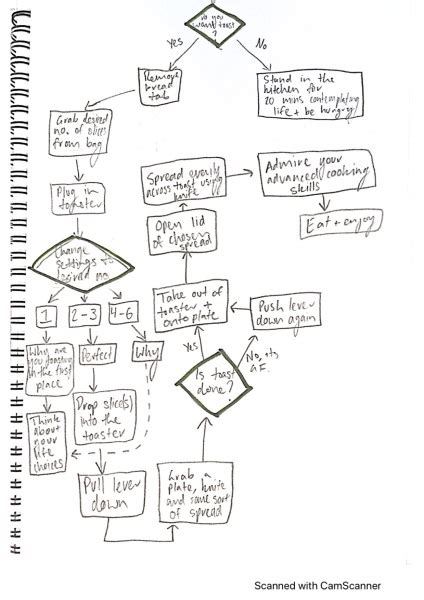 Do you
want toast
?
Yes
No
Remove
bread
tab
Stand in the
kitchen for
20 mins contemplating
life + be hungry
Grab desired
no. of slices
from bag
Plug in
toaster
Change
settings to
desired no.
1
2-3
4-6
Why are
you toasting
in the first
place
Perfect
Why
Think
about
your
life
choices
Drop slice(s)
into the
toaster
Pull lever
down
Grab a
plate, knife
and some sort
of spread
Is toast
done?
Yes
No, it's
a F.
Push lever
down again
Take out of
toaster +
onto plate
Open lid
of chosen
spread
Spread evenly
across toast using
knife
Admire your
advanced cooking
skills
Eat + enjoy
Scanned with CamScanner